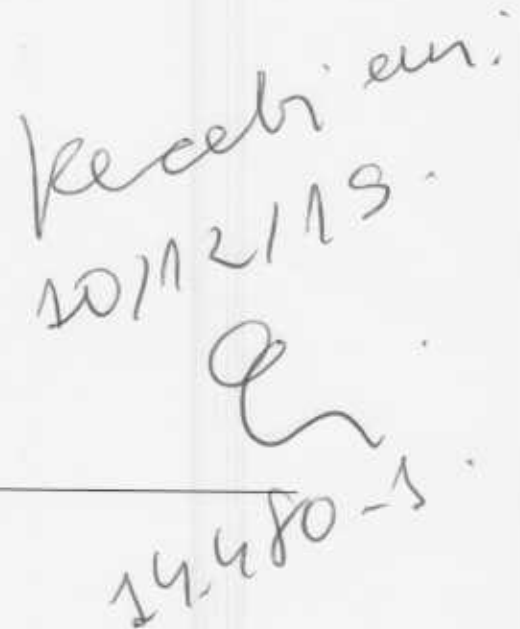 Recebi em:
10/12/19.
14.480-1